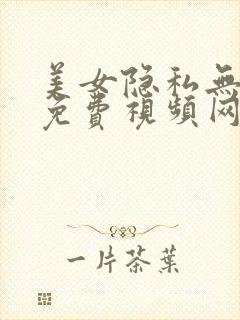 美女隐私無
免費視頻网
一片茶葉